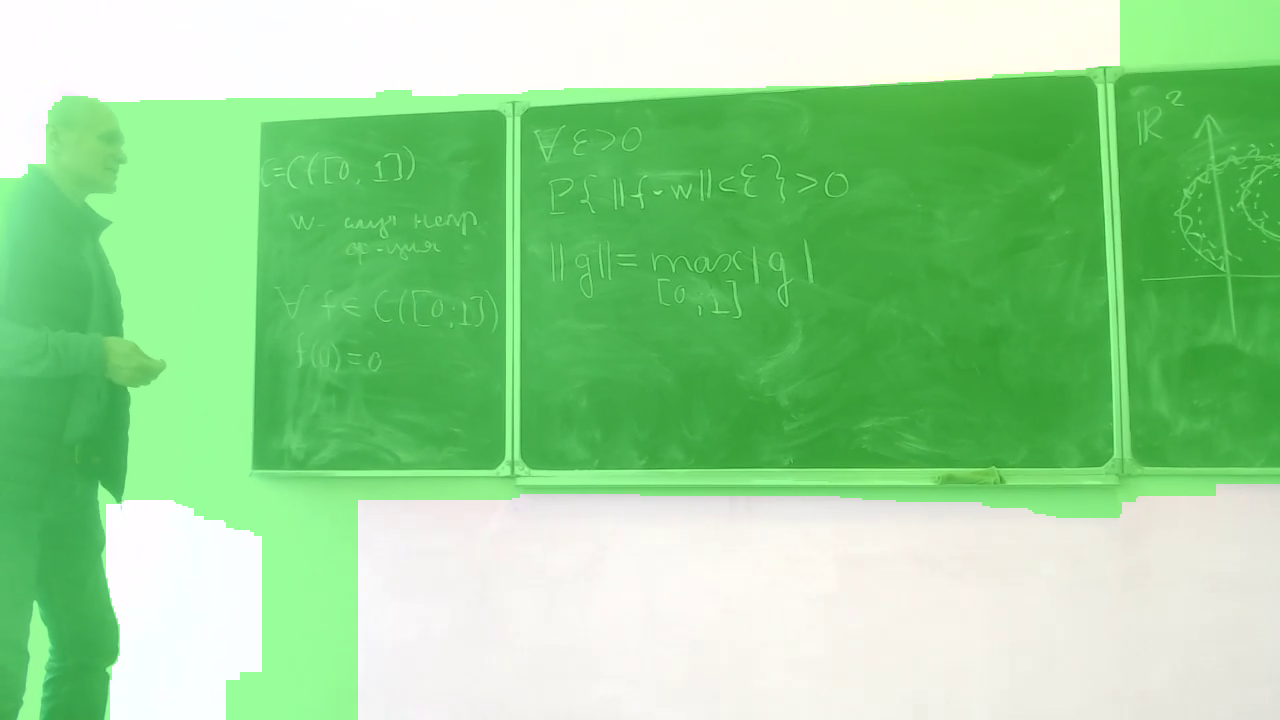 C=C([0,1])
w - случ непр.
ф-ция
∀ f ∈ C([0;1])
f(0)=0
∀ ε>0
P{ ||f-w||<ε}>0
||g||= max |g|
[0,;1]
ℝ²